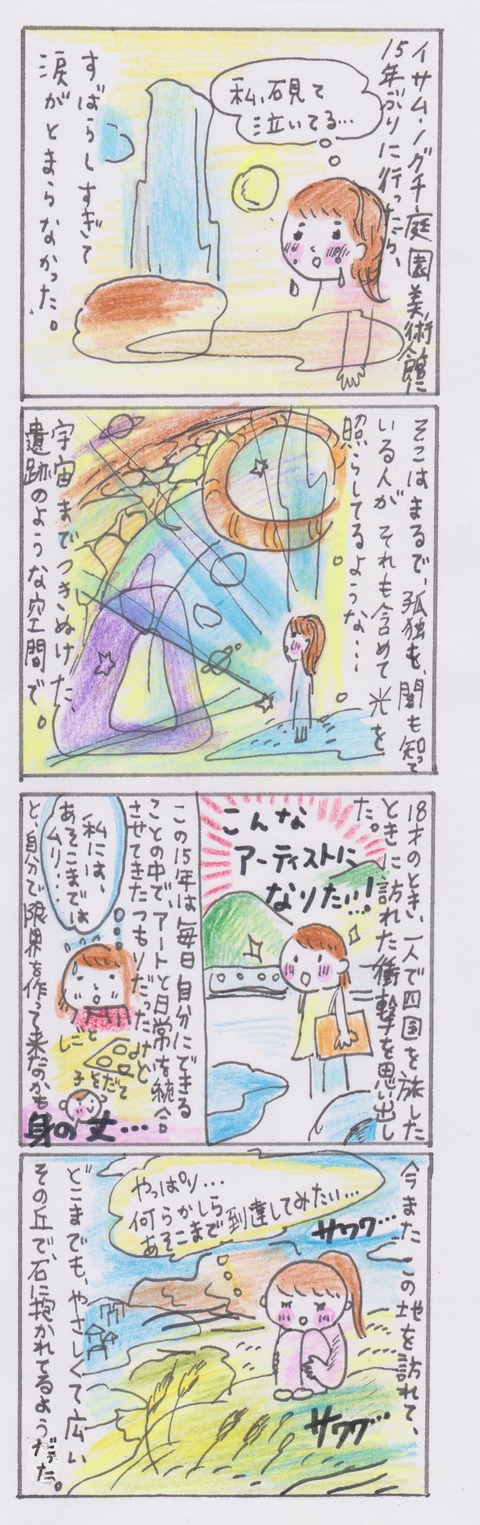 イサム・ノグチ庭園美術館に
15年ぶりに行ったら、
私、石見て
泣いてる…
すばらしすぎて
涙がとまらなかった。
そこはまるで、孤独も、闇も知って
いる人が それも含めて 光を
照らしてるような…
宇宙までつきぬけた、
遺跡のような空間で。
18才のとき、一人で四国を旅した
ときに訪れた衝撃を思い出し
た。
こんな
アーティストに
なりたい!!
この15年は、毎日自分にできる
ことの中で、アートと日常を統合
させてきたつもりだったけど
私には、
あそこまでは
ムリ…
しごと
子そだて
と、自分で限界を作って来たのかも
身の丈…
今また この地を訪れて、
やっぱり…
何らかしら
あそこまで到達してみたい…
サワワ…
サワワ…
どこまでも、やさしくて広い
その丘で、石に抱かれてるようだった。